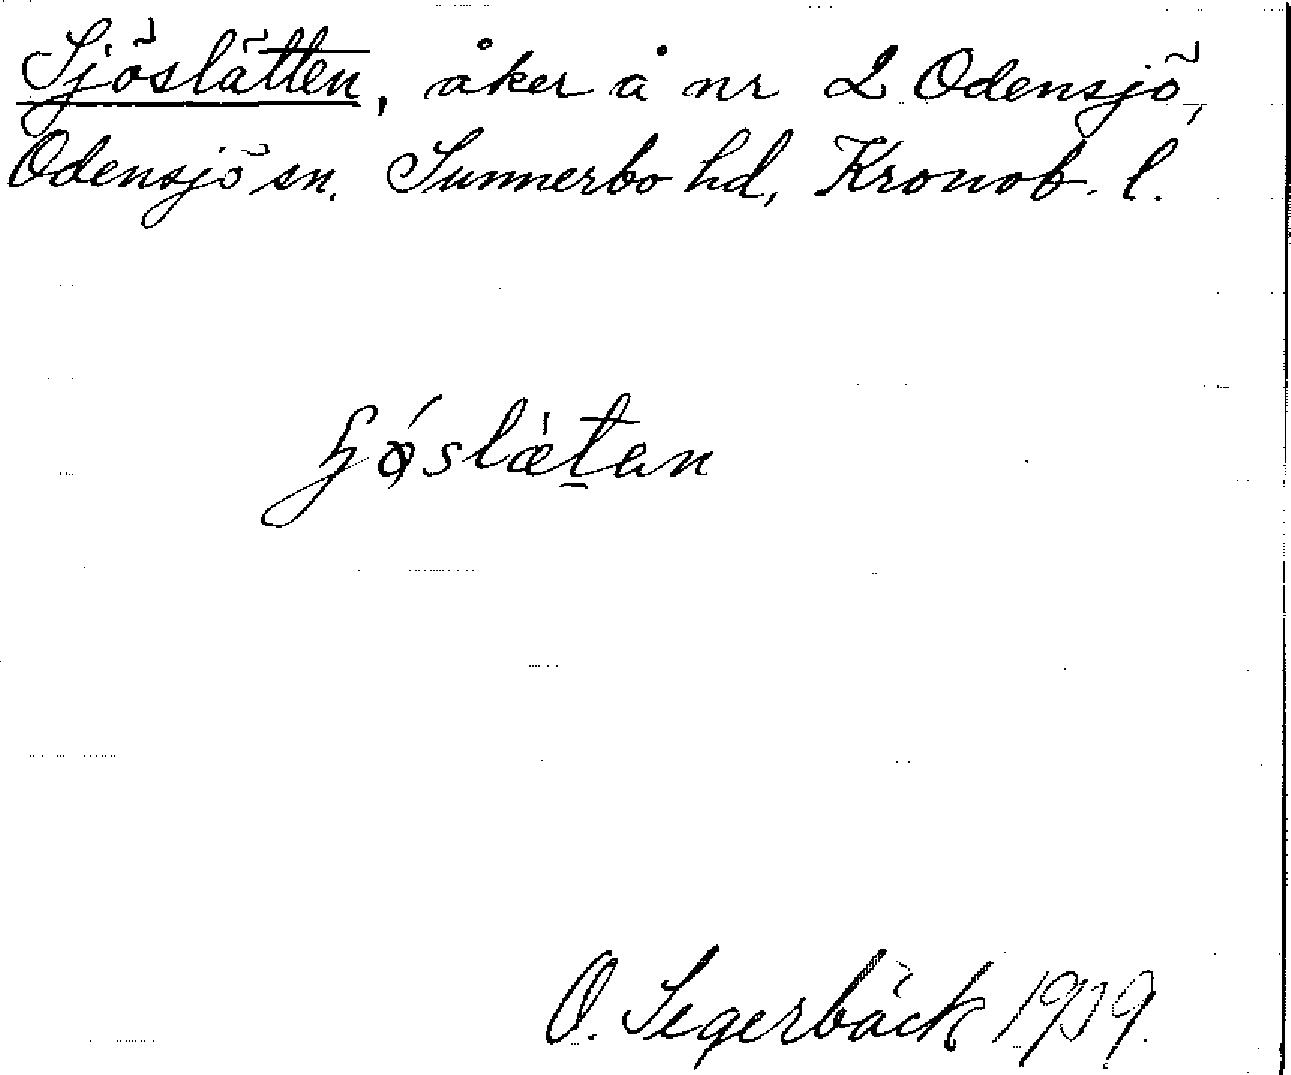 Sjöslätten, åker å nr 2 Odensjö,
Odensjö sn. Sunnerbo hd, Kronob. l.
ɧǿslæ̀t̠an
O. Segerbäck 1939.